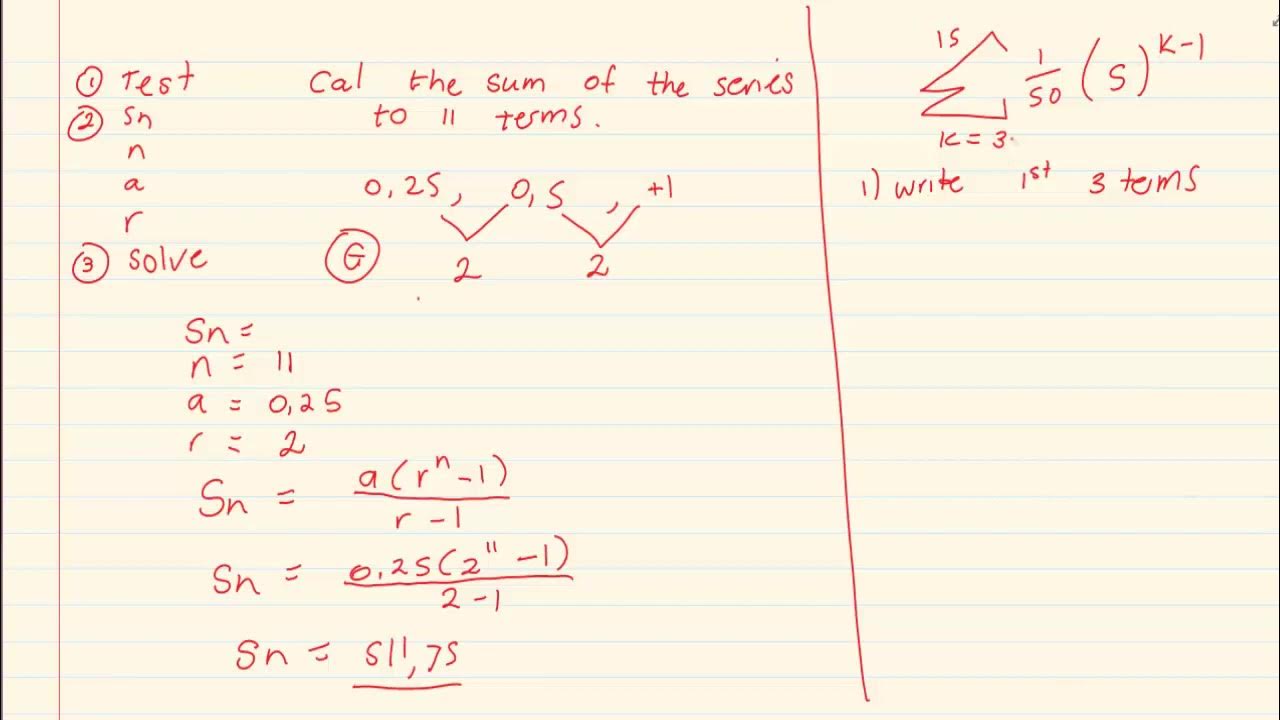 ① Test
② Sn
n
a
r
③ Solve
Cal the sum of the series
to 11 terms.
0,25, 0,5, +1
G 2 2
Sn =
n = 11
a = 0,25
r = 2
Sn = a(rⁿ-1)
r-1
Sn = 0,25(2¹¹-1)
2-1
Sn = 511,75
15
Σ 1/50 (5)ᵏ⁻¹
K = 3
1) write 1st 3 terms